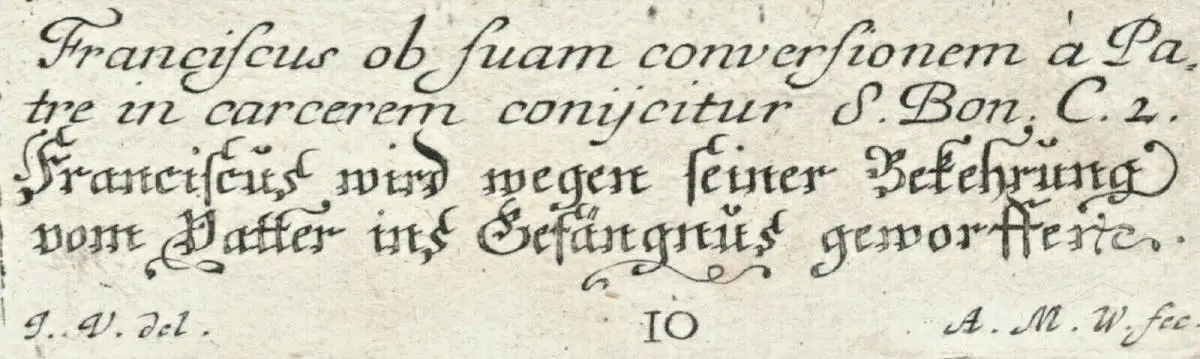 Franciſcus ob ſuam converſionem à Pa-
tre in carcerem conijcitur S. Bon. C. 2.
Franciſcŭs wird wegen ſeiner Bekehrŭng
vom Vatter ins Gefängnŭs geworffen ꝛc.
J. V. del. 10 A. M. W. fec.